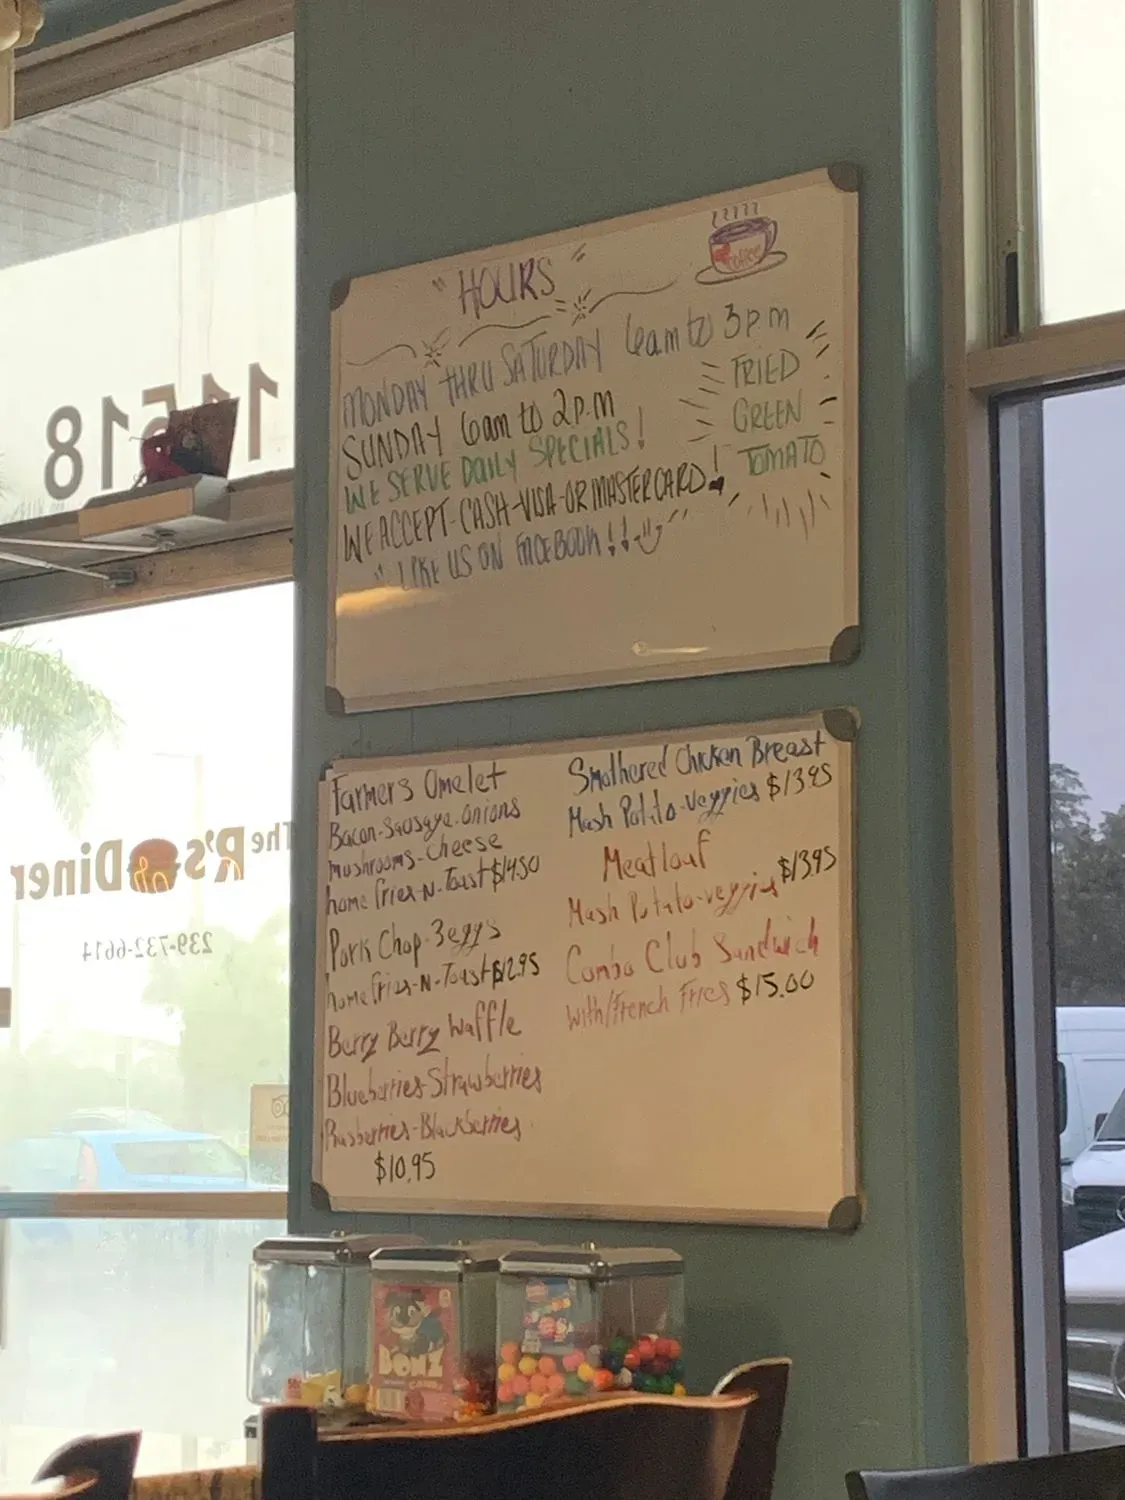 "HOURS"
coffee
MONDAY THRU SATURDAY 6am to 3p.m
SUNDAY 6am to 2p.m
WE SERVE DAILY SPECIALS!
WE ACCEPT-CASH-VISA-OR MASTERCARD!
"LIKE US ON FACEBOOK!!
FRIED
GREEN
TOMATO
Farmers Omelet
Bacon-Sausage-onions
mushrooms-cheese
home fries-N-Toast $14.50
Pork Chop-3 eggs
home fries-N-Toast $12.95
Berry Berry Waffle
Blueberries-Strawberries
Rasberries-Blackberries
$10.95
Smothered Chicken Breast
Mash Potato-veggies $13.95
Meatloaf
Mash Potato-veggies $13.95
Combo Club Sandwich
with/French Fries $15.00
11518
The R's Diner
239-732-6614
BONZ